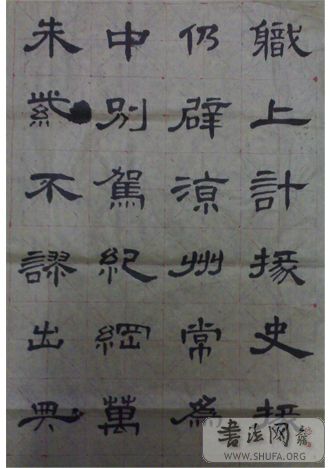 職上計掾史掾
仍辟涼州常為
中別駕紀綱萬
朱紫不謬出典
书法网
WWW.SHUFA.ORG